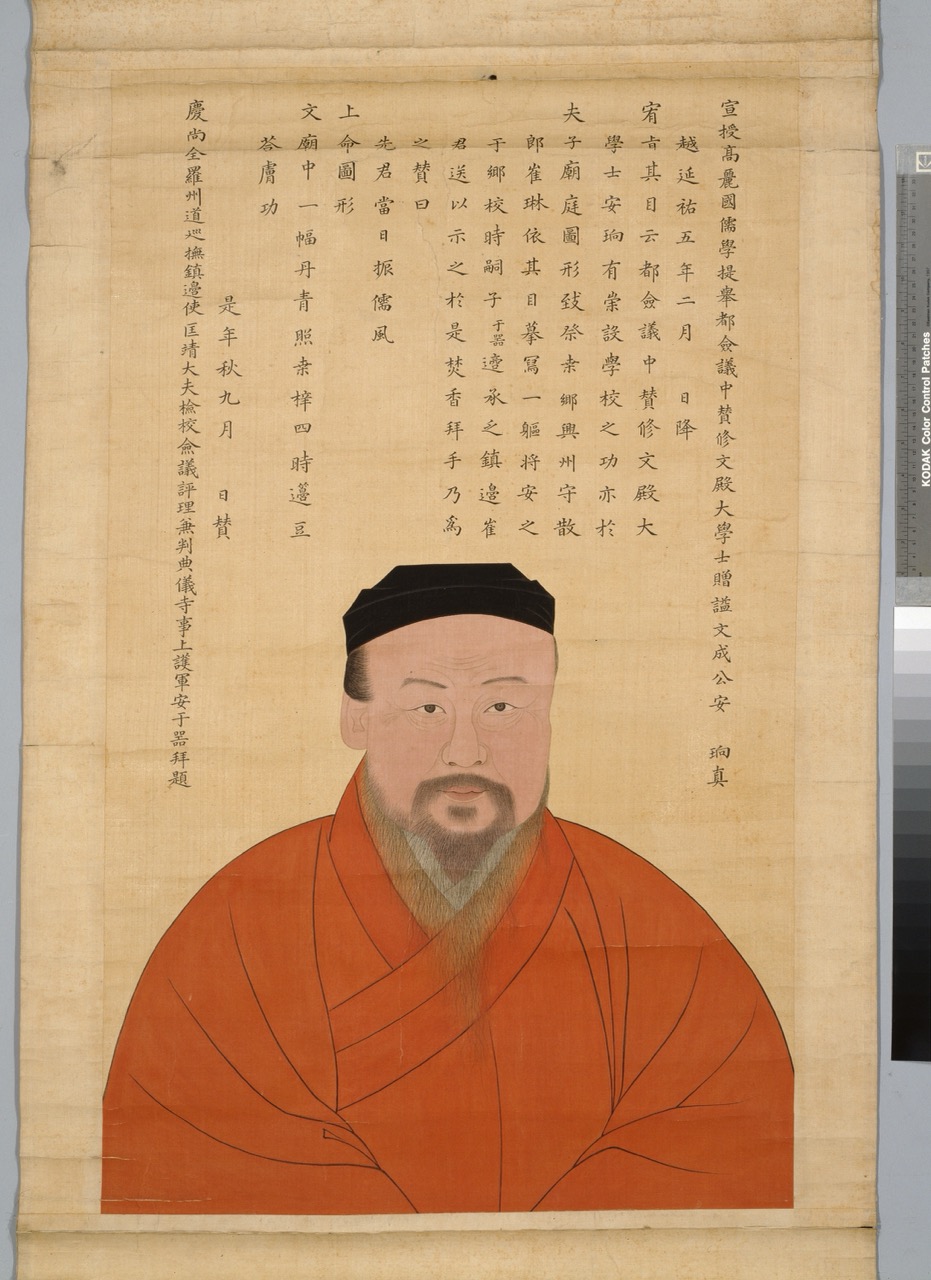 宣授髙麗國儒學提舉都僉議中賛修文殿大學士贈謚文成公安 珦真
越延祐五年二月 日降
宥旨其目云都僉議中賛修文殿大
學士安珦有崇設學校之功亦於
夫子廟庭圖形致祭桒鄉興州守散
郎崔琳依其目摹冩一軀將安之
于鄉校時嗣子于器邉承之鎮邉崔
君送以示之於是焚香拜手乃爲
之賛曰
先君當日振儒風
上命圖形
文廟中一幅丹青照桒梓四時籩豆
荅膚功
是年秋九月 日賛
慶尚全羅州道巡撫鎮邉使匡靖大夫檢校僉議評理兼判典儀寺事上護軍安于器拜題
KODAK Color Control Patches